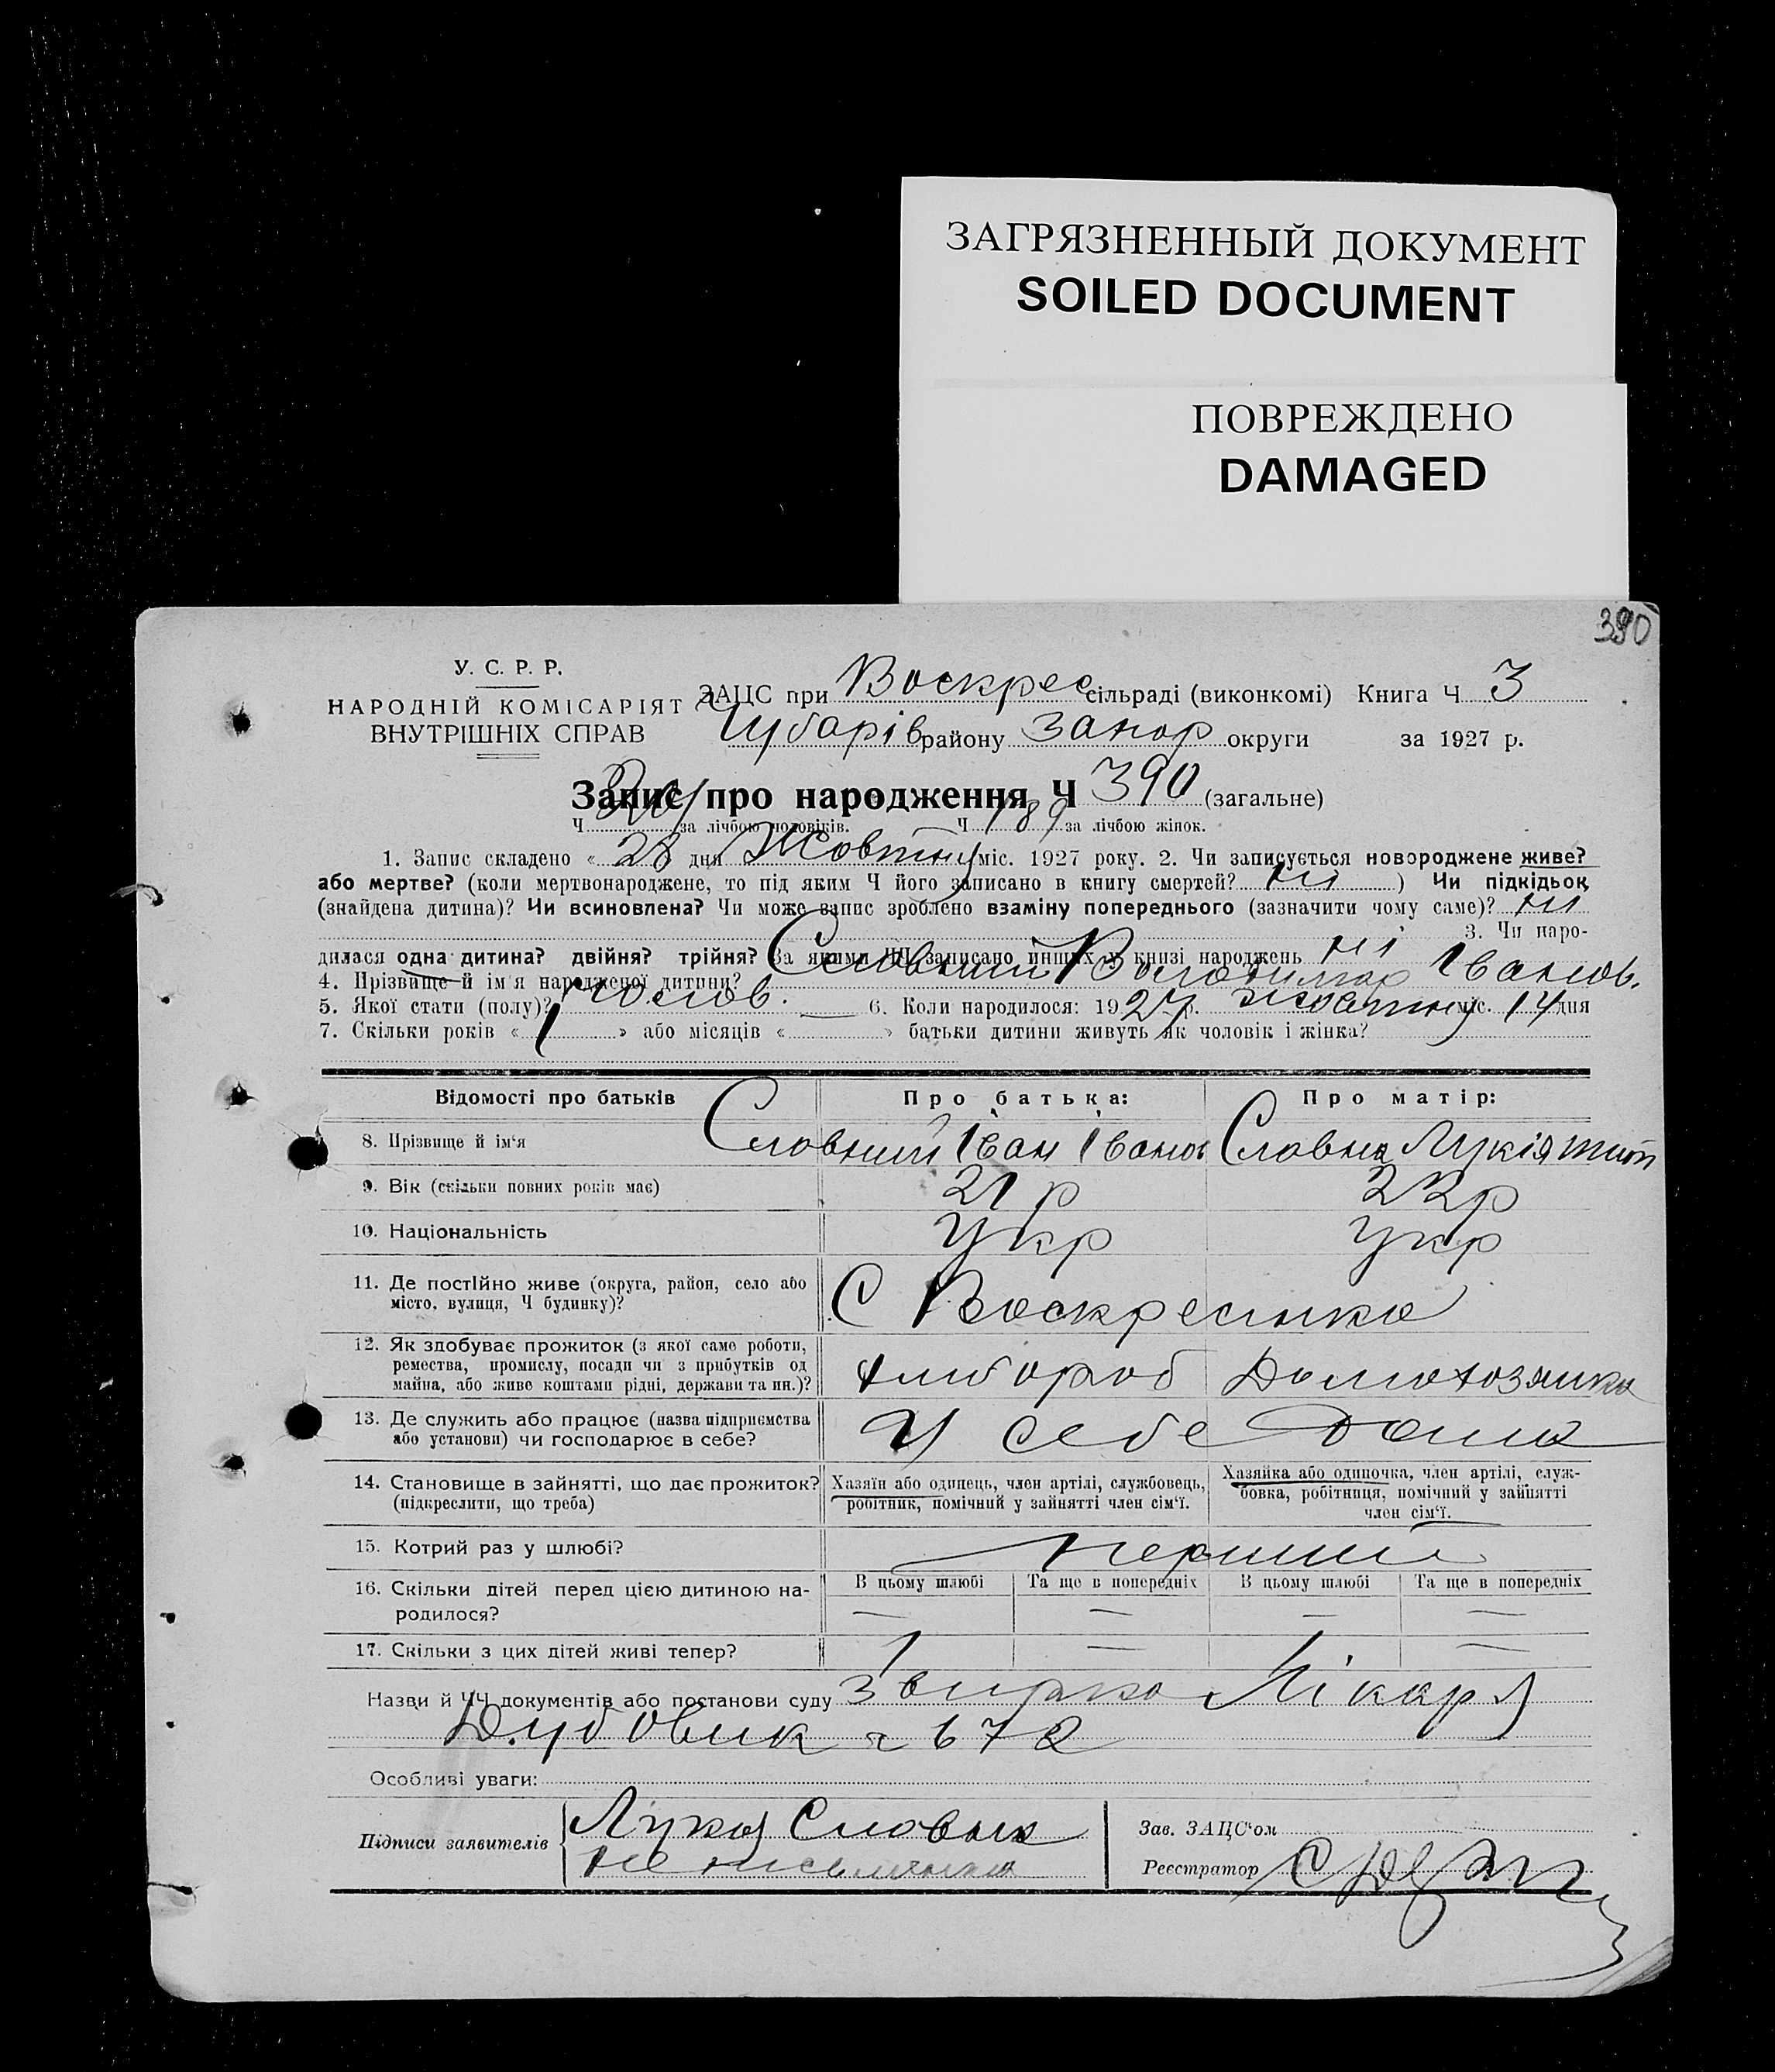 ЗАГРЯЗНЕННЫЙ ДОКУМЕНТ
SOILED DOCUMENT
ПОВРЕЖДЕНО
DAMAGED
390
У. С. Р. Р.
НАРОДНІЙ КОМІСАРІЯТ
ВНУТРІШНІХ СПРАВ
ЗАЦС при Воскрес сільраді (виконкомі) Книга Ч 3
Чубарів району Запор округи за 1927 р.
Запис про народження Ч 390 (загальне)
Ч за лічбою чоловіків. Ч 189 за лічбою жінок.
1. Запис складено « 28 дня Жовтню міс. 1927 року. 2. Чи записується новороджене живе?
або мертве? (коли мертвонароджене, то під яким Ч його записано в книгу смертей? ні ) Чи підкідьок
(знайдена дитина)? Чи всиновлена? Чи може запис зроблено взаміну попереднього (зазначити чому саме)? ні
3. Чи наро-
дилася одна дитина? двійня? трійня? За якими ЧЧ записано инших у книзі народжень ні
4. Прізвище й ім'я народженої дитини? Словний Володимар Іванов.
5. Якої стати (полу)? чолов. 6. Коли народилося: 1927 р. жовтню міс. 14 дня
7. Скільки років « 1 » або місяців « » батьки дитини живуть як чоловік і жінка?
Відомості про батьків Про батька: Про матір:
8. Прізвище й ім'я Словний Іван Іванов Словна Лукія
9. Вік (скільки повних років має) 21 р 22 р
10. Національність Укр Укр
11. Де постійно живе (округа, район, село або
місто, вулиця, Ч будинку)? С Воскресинка
12. Як здобуває прожиток (з якої саме роботи,
ремества, промислу, посади чи з прибутків од
майна, або живе коштами рідні, держави та ин.)? хлибороб Домохозяика
13. Де служить або працює (назва підприємства
або установи) чи господарює в себе? У себе дома
14. Становище в зайнятті, що дає прожиток?
(підкреслити, що треба)
Хазяїн або одинець, член артілі, службовець,
робітник, помічний у зайнятті член сім'ї.
Хазяйка або одиночка, член артілі, служ-
бовка, робітниця, помічний у зайнятті
член сім'ї.
15. Котрий раз у шлюбі? перший
16. Скільки дітей перед цією дитиною на-
родилося?
В цьому шлюбі Та ще в попередніх В цьому шлюбі Та ще в попередніх
— — — —
17. Скільки з цих дітей живі тепер? 1 — 1 —
Назви й ЧЧ документів або постанови суду Лікаря
Дубовик ч 672
Особливі уваги:
Підписи заявителів
Словна
не письменна
Зав. ЗАЦС'ом
Реєстратор